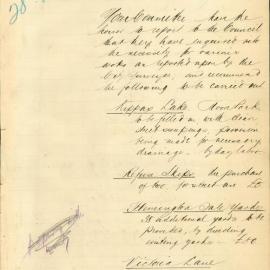 28
Your Committee have the
honor to report to the Council
that they have inquired into
the necessity for various
works as reported upon by the
City Surveyor, and recommend
the following to be carried out
Kippax Lake Moore Park
to be filled in with clean
street sweepings, provision
being made for necessary
drainage. by day labor
Refuse Skips the purchase
of two
Flemington Sale Yards
additional yards to be
provided, by dividing
existing yards
Victoria Lane